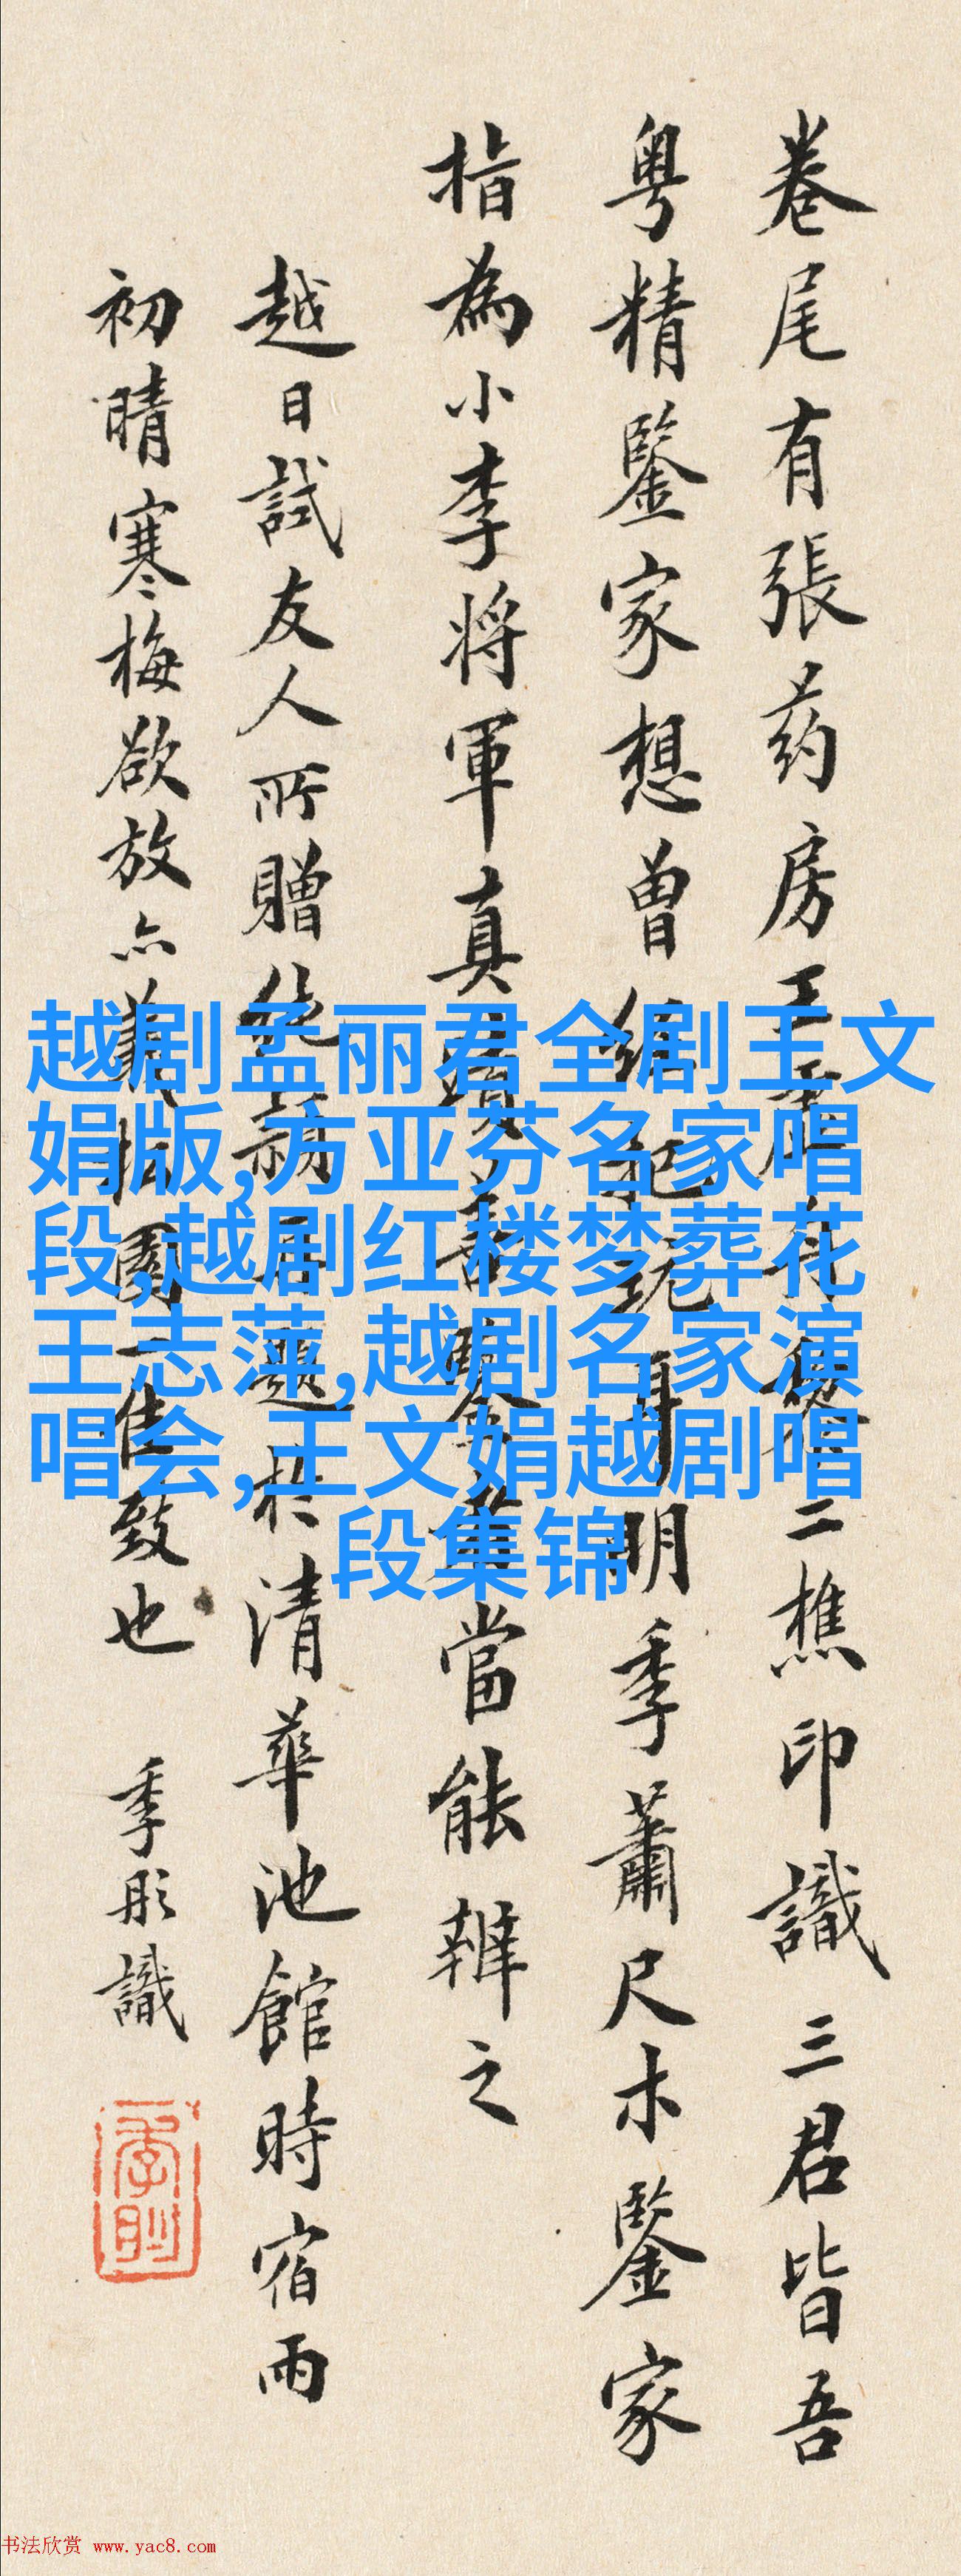 卷尾有張药房王二樵印識三君皆吾
粤精鑒家想曾經把玩耳明季蕭尺木鑒家
指為小李將軍真蹟善鑒者當能辨之
越日試友人所贈再題於清華池館時宿雨
初晴寒梅欲放亦園一佳致也 季彤識
越剧孟丽君全剧王文
娟版,方亚芬名家唱
段,越剧红楼梦葬花
王志萍,越剧名家演
唱会,王文娟越剧唱
段集锦
书法欣赏 www.yac8.com